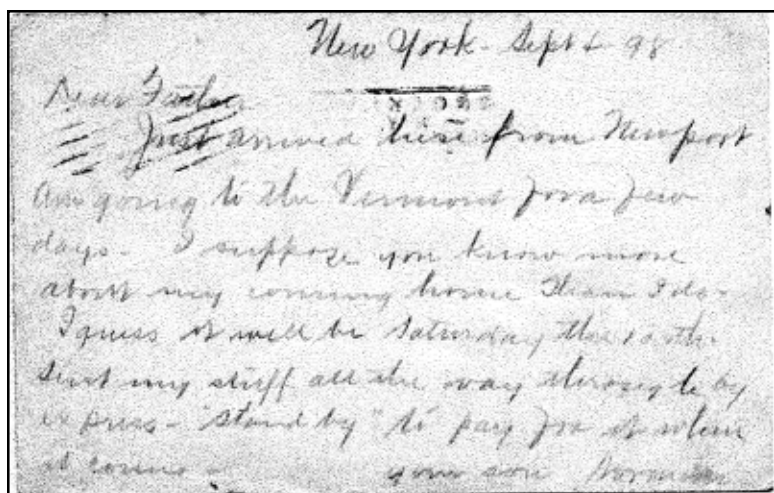 New York - Sept 98
Dear Father
Just arrived here from Newport
Am going to the Vermont for a few
days - I suppose you know more
about my coming home than I do -
I guess it will be Saturday the
sent my stuff all the way through by
express - "stand by" to pay for it when
it comes - your son Norman